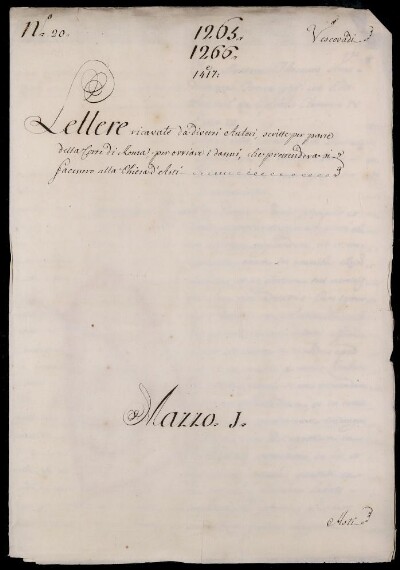 N.° 20.
1265.
1266.
1417.
Vescovadi
Lettere ricavate da diversi Autori, scritte per parte
della Corte di Roma per ovviare i danni, che pretendeva si
facessero alla Chiesa d'Asti
Mazzo. 1.
Asti